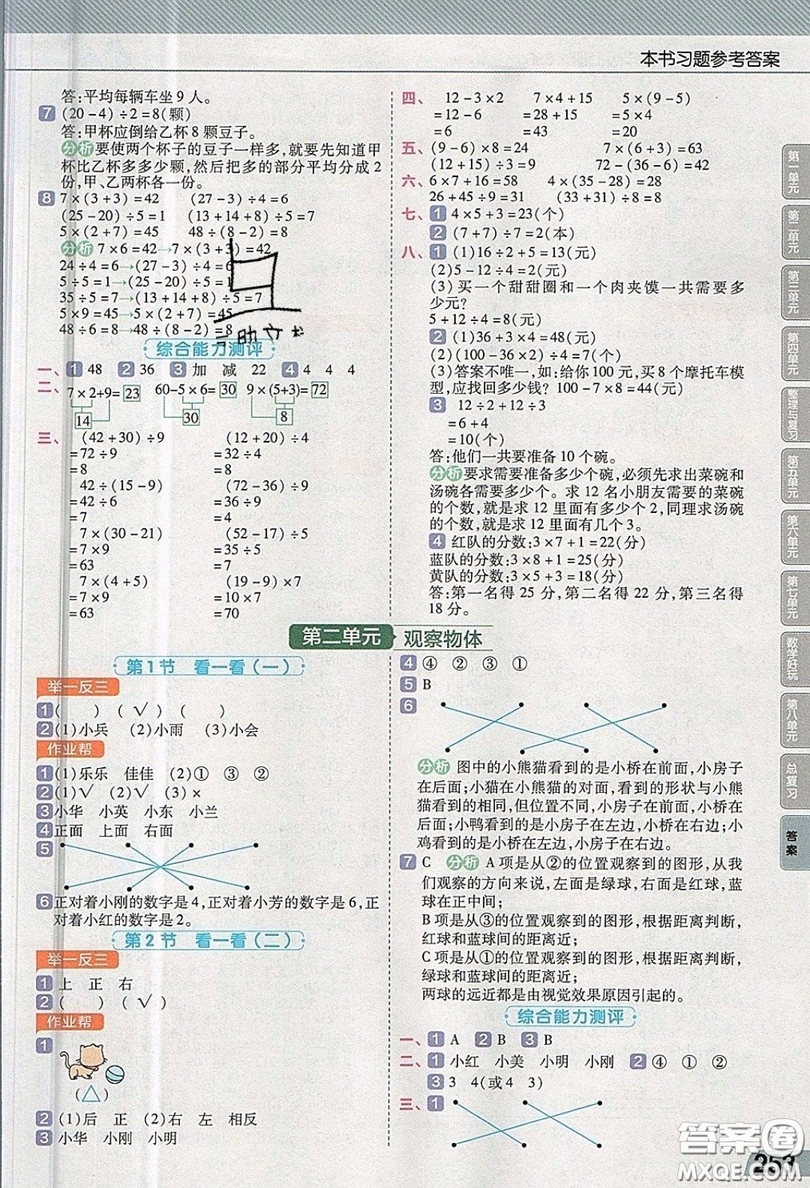 本书习题参考答案
答:平均每辆车坐 9 人。
7 (20-4)÷2=8(颗)
答:甲杯应倒给乙杯 8 颗豆子。
分析 要使两个杯子的豆子一样多,就要先知道甲
杯比乙杯多多少颗,然后把多的部分平均分成 2
份,甲、乙两杯各一份。
8 7×(3+3)=42 (27-3)÷4=6
(25-20)÷5=1 (13+14+8)÷5=7
5×(2+7)=45 48÷(8-2)=8
分析 7×6=42→7×(3+3)=42
24÷4=6→(27-3)÷4=6
5÷5=1→(25-20)÷5=1
35÷5=7→(13+14+8)÷5=7
5×9=45→5×(2+7)=45
48÷6=8→48÷(8-2)=8
综合能力测评
一、1 48 2 36 3 加 减 22 4 4 4 4
二、7×2+9=23 60-5×6=30 9×(5+3)=72
14 30 8
三、 (42+30)÷9 (12+20)÷4
=72÷9 =32÷4
=8 =8
42÷(15-9) (31+25)÷7
=42÷6 =56÷7
=7 =8
7×(30-21) (52-17)÷5
=7×9 =35÷5
=63 =7
7×(3+6) 10×(16-9)
=7×9 =10×7
=63 =70
四、 12-3×2 7×4+15 5×(9-5)
=12-6 =28+15 =5×4
=6 =43 =20
五、(9-6)×9=27 (6+3)×7=63
(12+15)÷3=9 (62-8)÷9=6
六、6×7+16=58 4×(35-28)=28
26+45÷9=31 (33+31)÷8=8
七、1 4×5+3=23(个)
2 (7+7)÷7=2(本)
八、1 (1)16÷2+5=13(元)
(2)5-12÷4=2(元)
(3)买一个甜甜圈和一个肉夹馍一共需要多
少元?
5+12÷4=8(元)
2 (1)36+3×4=48(元)
(2)(100-36)÷2=32(元)
(3)答案不唯一,如:给你 100 元,买 8 个摩托车模
型,应找回多少钱? 100-8×7=44(元)
3 12÷2+12÷3
=6+4
=10(个)
答:他们一共要准备 10 个碗。
分析 要求需要准备多少个碗,必须先求出菜碗和
汤碗各需要多少个。求 12 名小朋友需要的菜碗
的个数,就是求 12 里面有多少个 2,同理求汤碗
的个数,就是求 12 里面有几个 3。
4 红队的分数:3×7+1=22(分)
蓝队的分数:3×8+1=25(分)
黄队的分数:3×5+3=18(分)
答:第一名得 25 分,第二名得 22 分,第三名得
18 分。
第二单元 观察物体
第1节 看一看(一)
举一反三
1 ( ) (√) ( )
2 (1)小兵 (2)小雨 (3)小会
作业帮
1 (1)乐乐 佳佳 (2)① ③ ②
2 (1)√ (2)√ (3)×
3 小华 小英 小东 小兰
4 正面 上面 右面
5
6 正对着小刚的数字是 4,正对着小芳的数字是 6,正
对着小红的数字是 2。
第2节 看一看(二)
举一反三
1 上 正 右
2 ( ) ( ) (√)
作业帮
1
(△)
2 (1)后 正 (2)右 左 相反
3 小华 小刚 小明
4 ④ ② ③ ①
5 B
6
分析 图中的小熊猫看到的是小桥在前面,小房子
在后面;小猫在小熊猫的对面,看到的形状与小熊
猫看到的相同,但位置不同,小房子在前面,小桥
在后面;小鸭看到的是小房子在左边,小桥在右边;小
鸡看到的是小房子在右边,小桥在左边。
7 C 分析 A 项是从②的位置观察到的图形,从我
们观察的方向来说,左面是绿球,右面是红球,蓝
球在正中间;
B 项是从③的位置观察到的图形,根据距离判断,
红球和蓝球间的距离近;
C 项是从①的位置观察到的图形,根据距离判断,
绿球和蓝球间的距离近;
两球的远近都是由视觉效果原因引起的。
综合能力测评
一、1 A 2 B 3 B
二、1 小红 小美 小明 小刚 2 ④ ① ②
3 3 4(或 4 3)
三、1
第一单元
第二单元
第三单元
第四单元
整理与复习
第五单元
第六单元
第七单元
数学好玩
第八单元
总复习
答案
253
答案圈
MXQE.COM